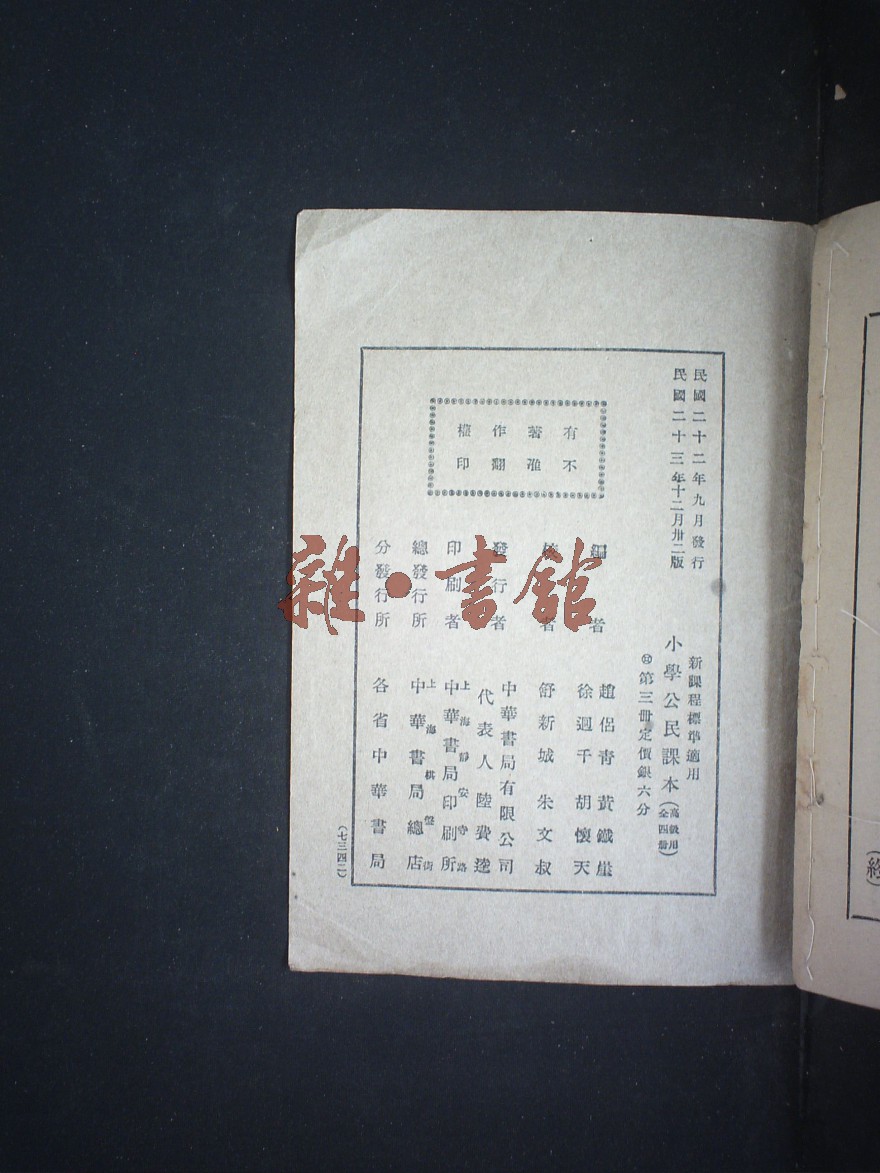 民國二十二年九月發行
民國二十三年十二月卅二版
新課程標準適用
小學公民課本(高級用全四冊)
第三冊定價銀六分
有著作權
不准翻印
編者
趙侶青 黃鐵崖
徐迥千 胡懷天
者
舒新城 朱文叔
發行者
中華書局有限公司
代表人 陸費逵
印刷者
上海靜安寺路
中華書局印刷所
總發行所
上海棋盤街
中華書局總店
分發行所
各省中華書局
(七三四二)
雜·書館